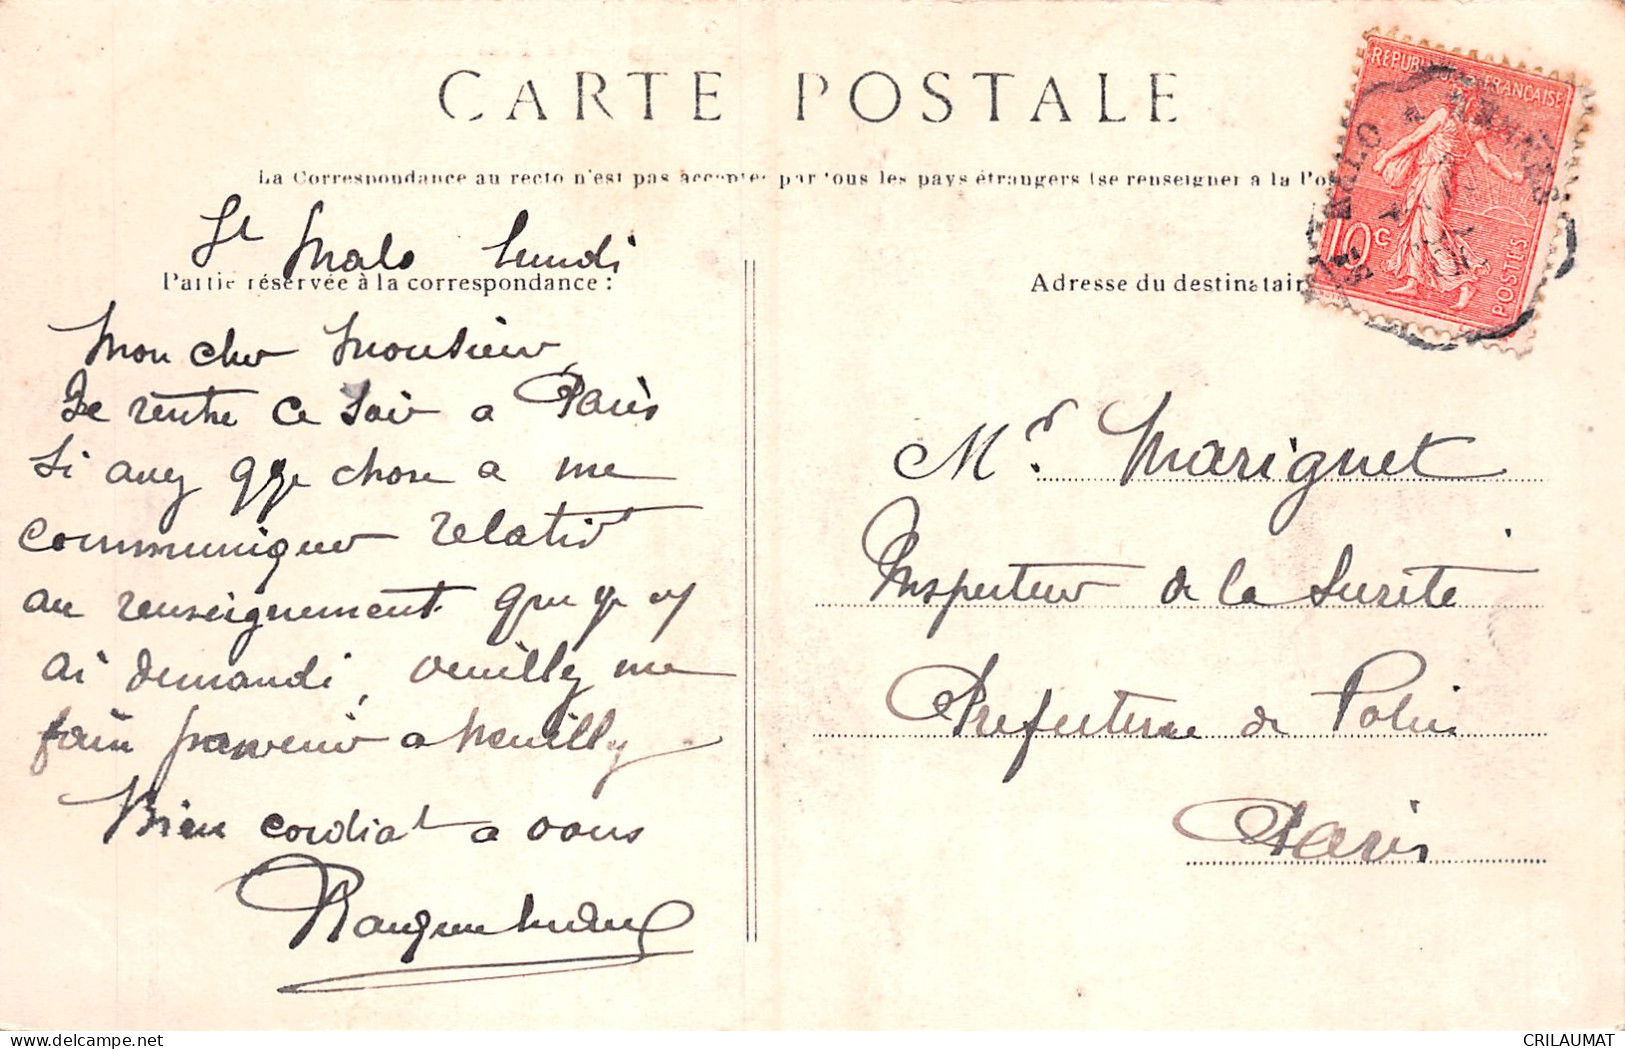 CARTE POSTALE
La Correspondance au recto n'est pas acceptée par tous les pays étrangers (se renseigner à la Pos
St Malo Lundi
Partie réservée à la correspondance :
Mon cher Monsieur,
Je rentre ce soir a Paris
Si avez qqe chose a me
communiquer relatif
au renseignement que je vs
ai demandé, veuillez me
faire parvenir a Neuilly
Bien cordialt a vous
Adresse du destinatair
REPUBLIQUE FRANÇAISE
10 c
POSTES
Mr. Marignet
Inspecteur de la Sureté
Prefecture de Police
Paris
CRILAUMAT